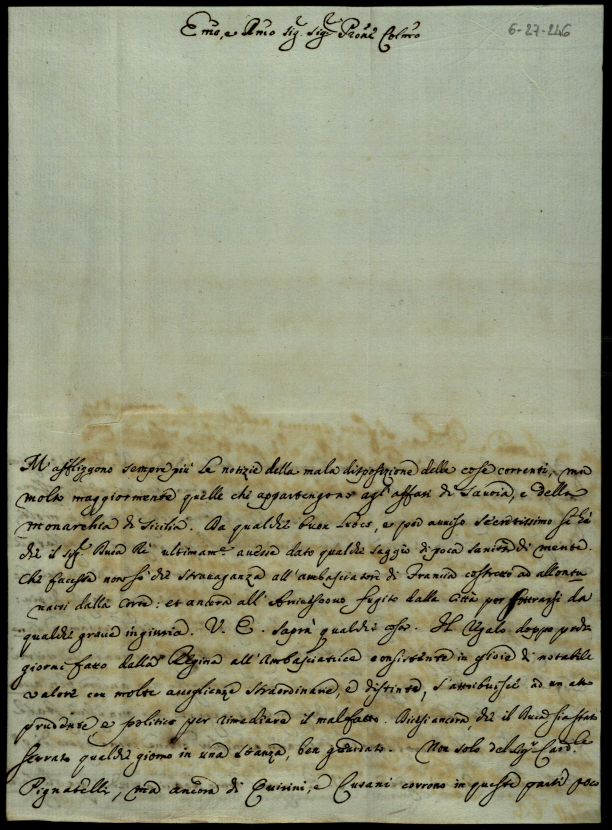 Emo, e Rmo Sig.r Sig.r Prone Colmo
6-27-246
M'affliggono sempre più le notizie della mala disposizione delle cose correnti, ma
molto maggiormente quelle che appartengono agl'affari di Savoia, e della
Monarchia di Sicilia. Da qualche buon e per avviso si hà
che il sig.r Duca Rè ultimam.e avesse dato qualche saggio di poca sanità di mente.
Che facesse non sò che stravaganza all'Ambasciatore di Francia costretto ad allonta
narsi dalla Corte: et ancora all'Arcivescovo fugito dalla Città per sottrarsi da
qualche grave ingiuria. V. E. saprà qualche cosa. Il Regalo doppo pochi
giorni fatto dalla Regina all'Ambasciatrice consistente in gioie di notabile
valore con molte accoglienze straordinarie, e distinte, s'attribuisce ad un atto
prudente, e politico per rimediare il malfatto. Dicesi ancora, che il Duca sia stato
serrato qualche giorno in una stanza, ben guardato. Non solo del Sig.r Card.le
Pignatelli, mà ancora di Quirini, e Cusani corrono in queste parti poco